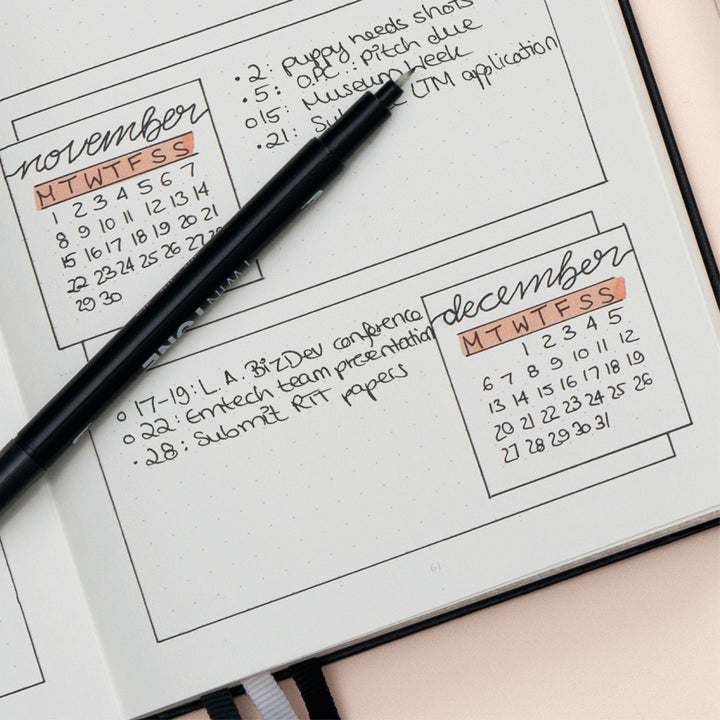 • 2: puppy needs shots
• 5: OPC: pitch due
o 15: Museum Week
• 21: LTM application
november
M T W T F S S
1 2 3 4 5 6 7
8 9 10 11 12 13 14
15 16 17 18 19 20 21
22 23 24 25 26 27 28
29 30
december
M T W T F S S
1 2 3 4 5
6 7 8 9 10 11 12
13 14 15 16 17 18 19
20 21 22 23 24 25 26
27 28 29 30 31
o 17-19: L.A. BizDev conference
o 22: Emtech team presentation
• 28: Submit RTT papers
TWINTONE
61